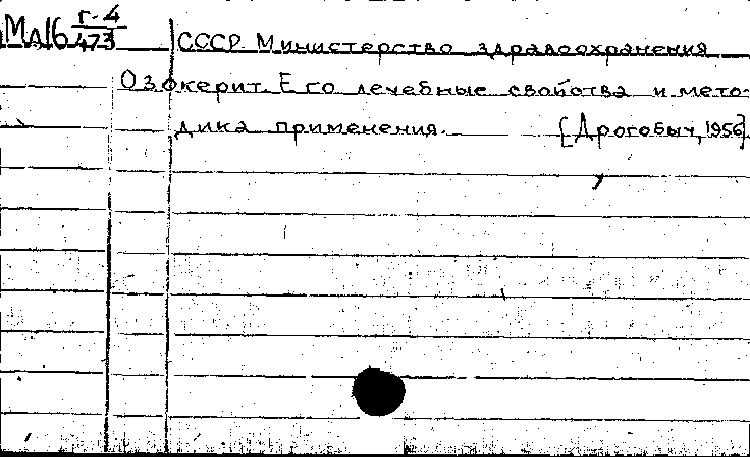 Мд16 г-4/473
СССР Министерство здравоохранения
Озокерит. Его лечебные свойства и мето-
дика применения. –  [Дрогобыч, 1956]